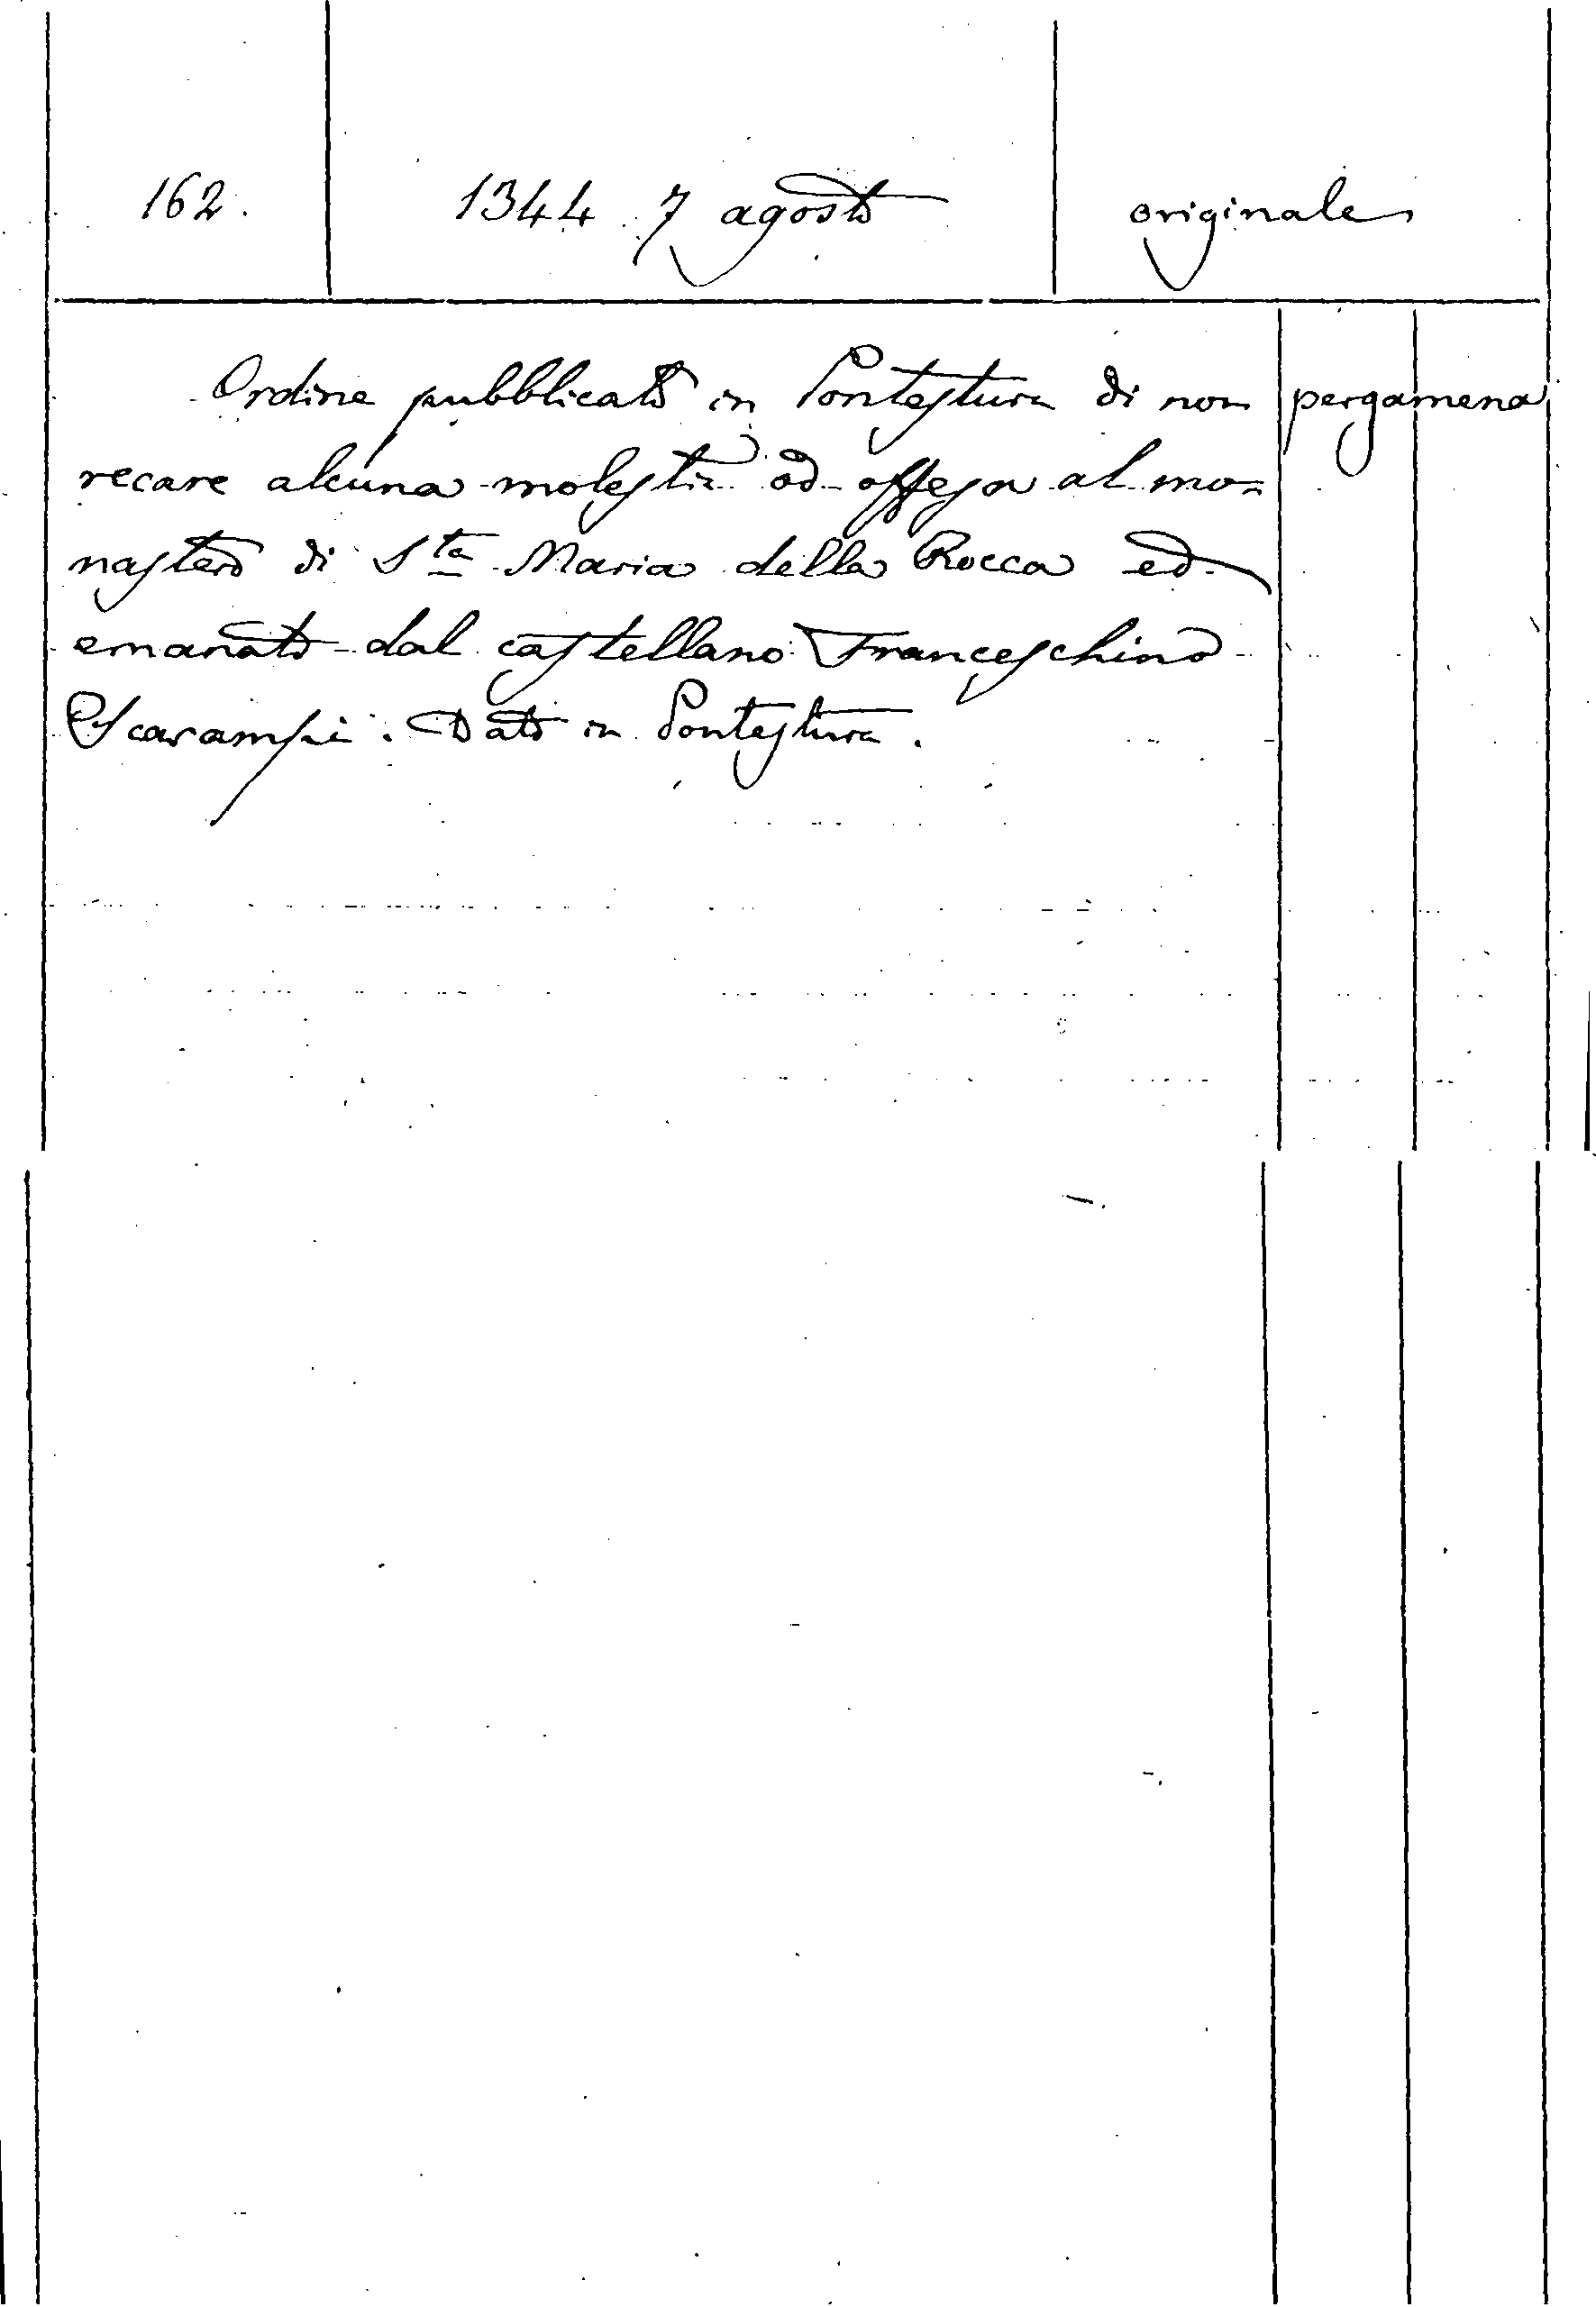 162. 1344 7 agosto originale
Ordine pubblicato in Pontestura di non pergamena
recare alcuna molestia od offesa al mo=
nastero di S.ta Maria della Rocca ed
emanato dal castellano Franceschino
Scarampi. Dato in Pontestura.